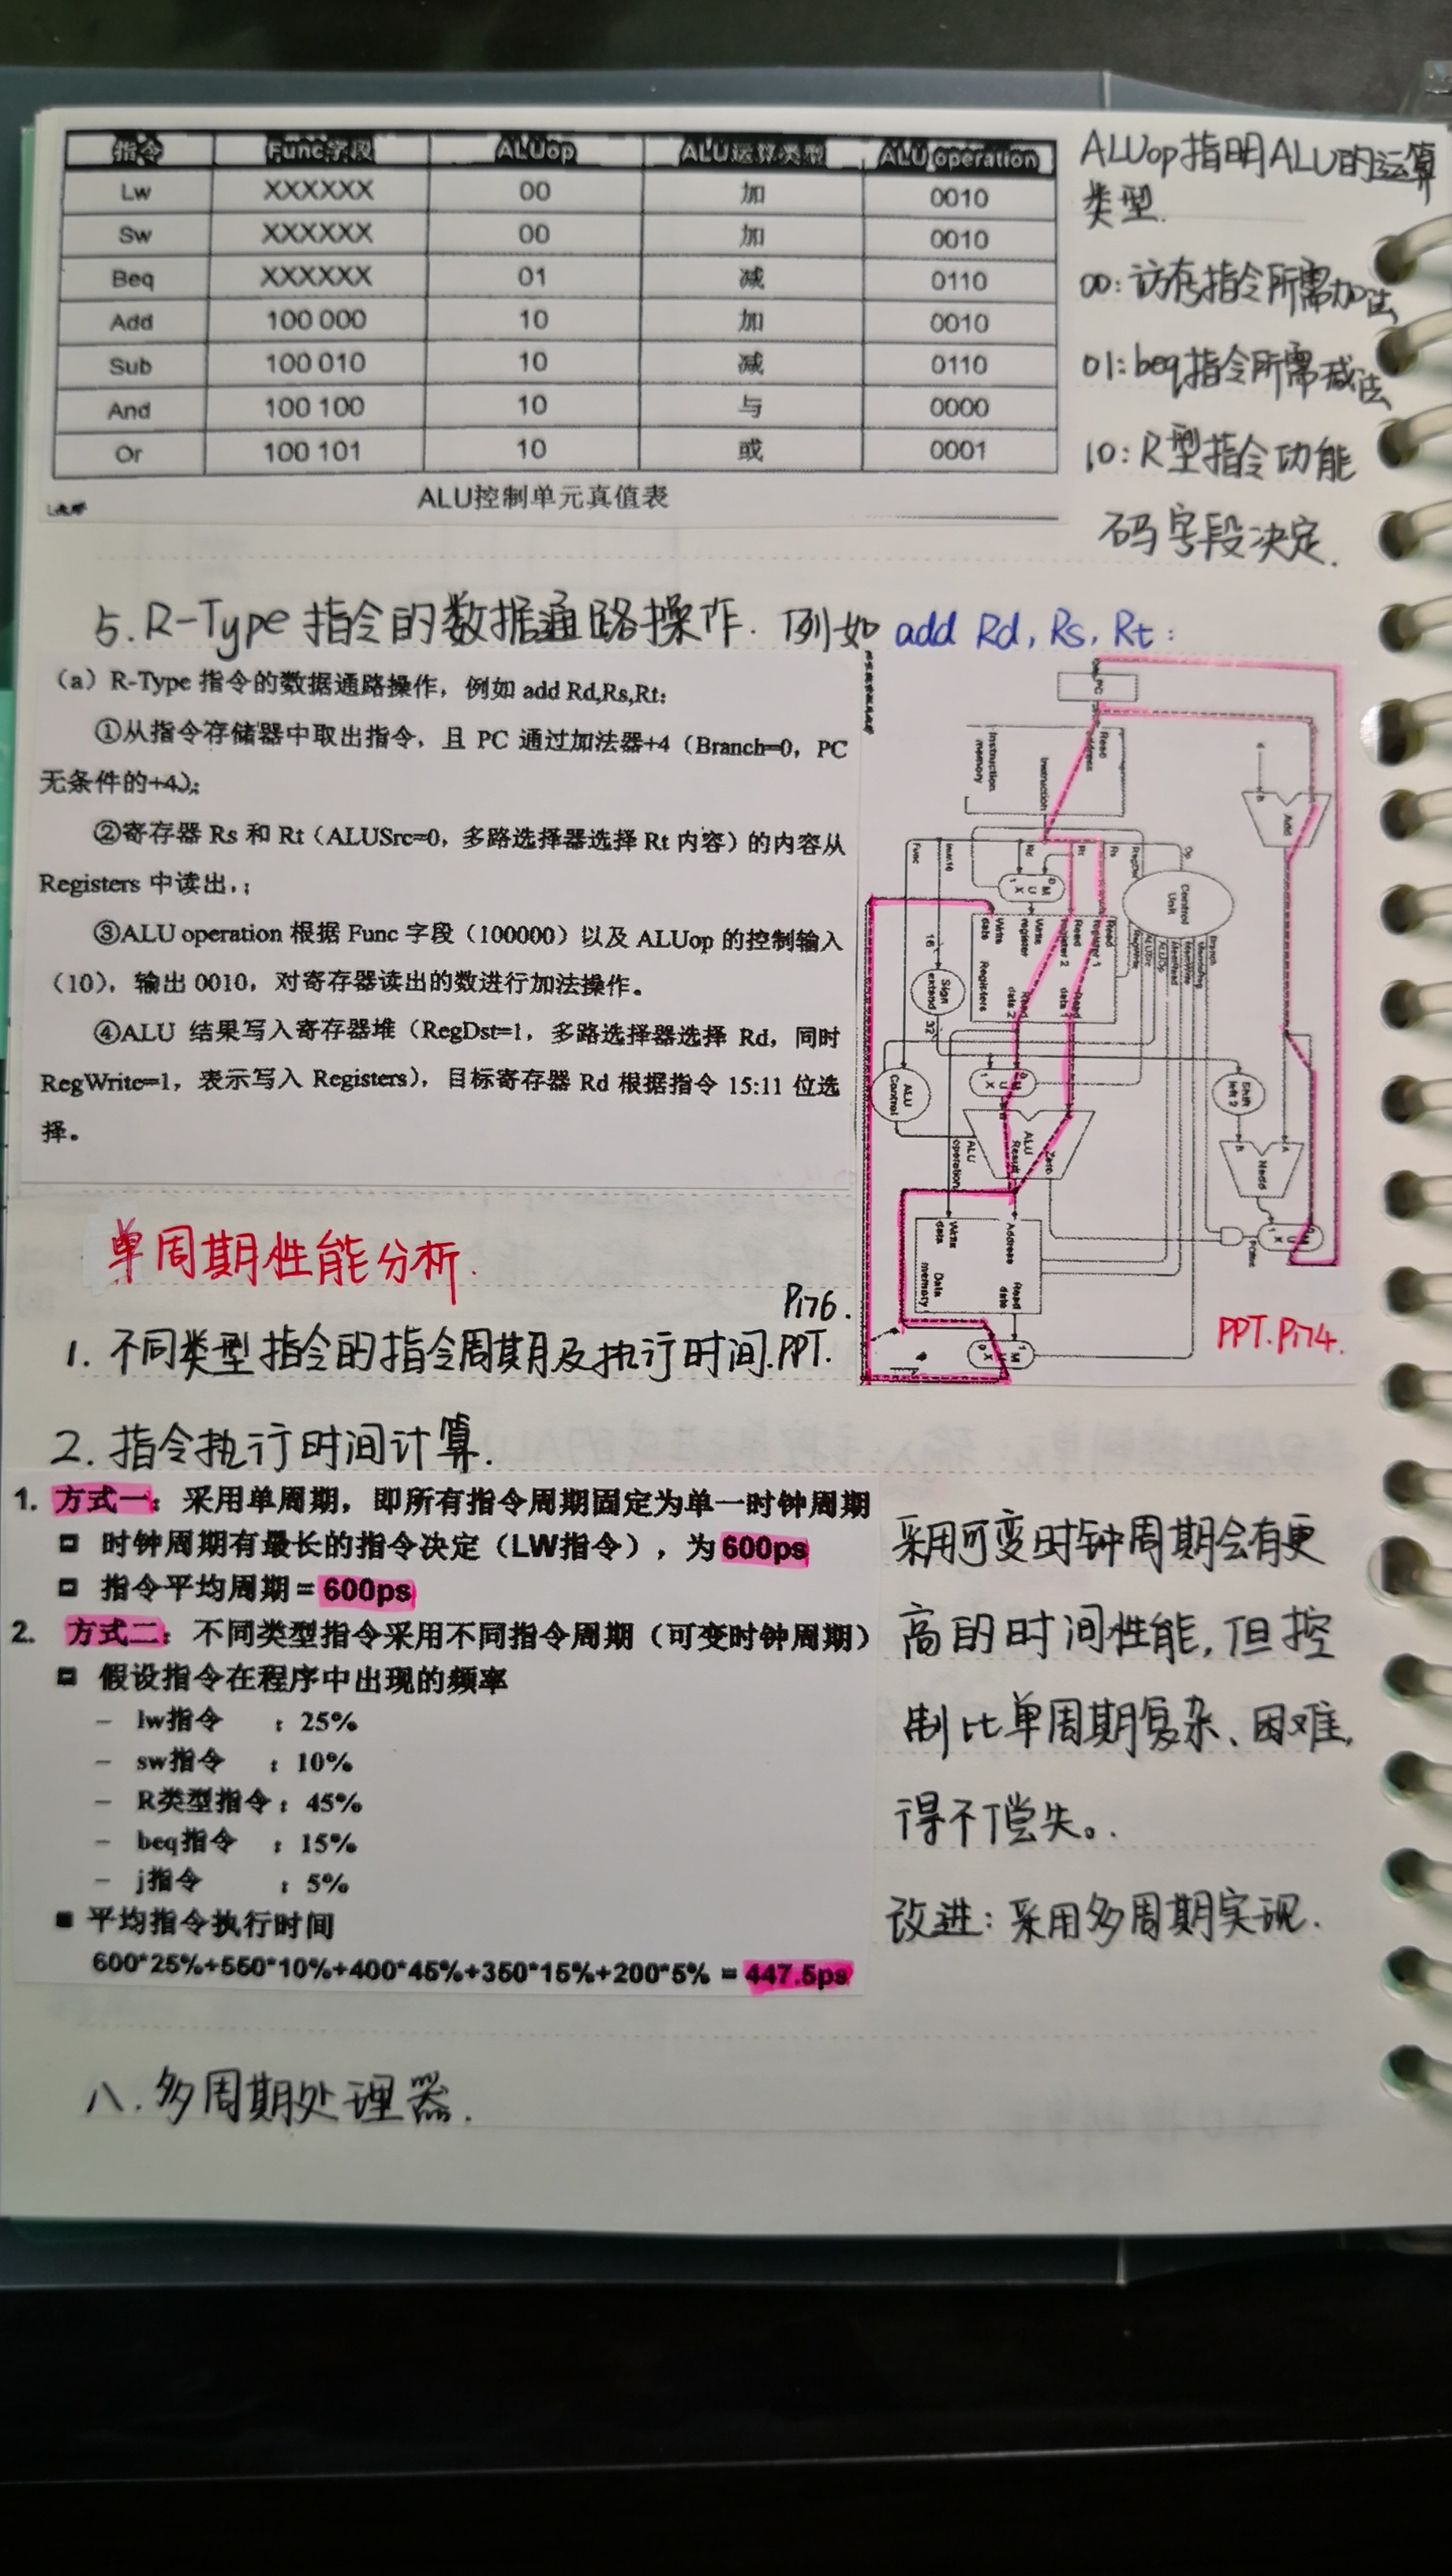 指令 Func字段 ALUop ALU运算类型 ALU operation
Lw XXXXXX 00 加 0010
Sw XXXXXX 00 加 0010
Beq XXXXXX 01 减 0110
Add 100 000 10 加 0010
Sub 100 010 10 减 0110
And 100 100 10 与 0000
Or 100 101 10 或 0001
ALU控制单元真值表
ALUop指明ALU的运算
类型.
00:访存指令所需加法
01:beq指令所需减法
10:R型指令功能
码字段决定.
5.R-Type指令的数据通路操作.例如 add Rd,Rs,Rt:
(a)R-Type 指令的数据通路操作,例如 add Rd,Rs,Rt:
①从指令存储器中取出指令,且 PC 通过加法器+4(Branch=0,PC
无条件的+4);
②寄存器 Rs 和 Rt(ALUSrc=0,多路选择器选择 Rt 内容)的内容从
Registers 中读出,;
③ALU operation 根据 Func 字段(100000)以及 ALUop 的控制输入
(10),输出 0010,对寄存器读出的数进行加法操作。
④ALU 结果写入寄存器堆(RegDst=1,多路选择器选择 Rd,同时
RegWrite=1,表示写入 Registers),目标寄存器 Rd 根据指令 15:11 位选
择。
PC
Read address
Instruction
Instruction memory
4
Add
Op
RegDst
Rs
Rt
Rd
imm16
Func
Control Unit
Branch
MemtoReg
MemWrite
MemRead
ALUOp
ALUSrc
RegWrite
0 M U X 1
Read register 1
Read register 2
Write register
Write data
Registers
Read data 1
Read data 2
16
Sign extend
32
Shift left 2
0 M U X 1
ALU Control
ALU Result
Zero
ALU operation
A
B
Nadd
0 M U X 1
PCsrc
Address
Write data
Read data
Data memory
1 M U X 0
PPT.P174.
单周期性能分析.
1.不同类型指令的指令周期及执行时间.PPT.
P176.
2.指令执行时间计算.
1. 方式一:采用单周期,即所有指令周期固定为单一时钟周期
时钟周期有最长的指令决定(LW指令),为600ps
指令平均周期=600ps
2. 方式二:不同类型指令采用不同指令周期(可变时钟周期)
假设指令在程序中出现的频率
– lw指令 :25%
– sw指令 :10%
– R类型指令:45%
– beq指令 :15%
– j指令 :5%
平均指令执行时间
600*25%+550*10%+400*45%+350*15%+200*5% = 447.5ps
采用可变时钟周期会有更
高的时间性能,但控
制比单周期复杂、困难,
得不偿失。.
改进:采用多周期实现.
八.多周期处理器.